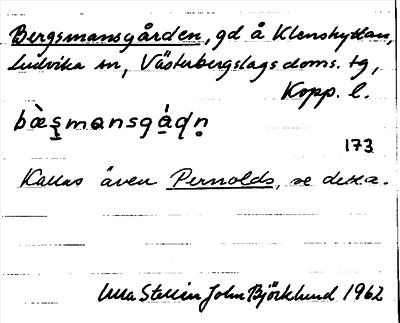 Bergsmansgården, gd å Klenshyttan,
Ludvika sn, Västerbergslags doms. tg,
Kopp. l.
bæ̀ʂmansgá̱dn̥
173
Kallas även Pernolds, se detta.
Ulla Stellin John Björklund 1962